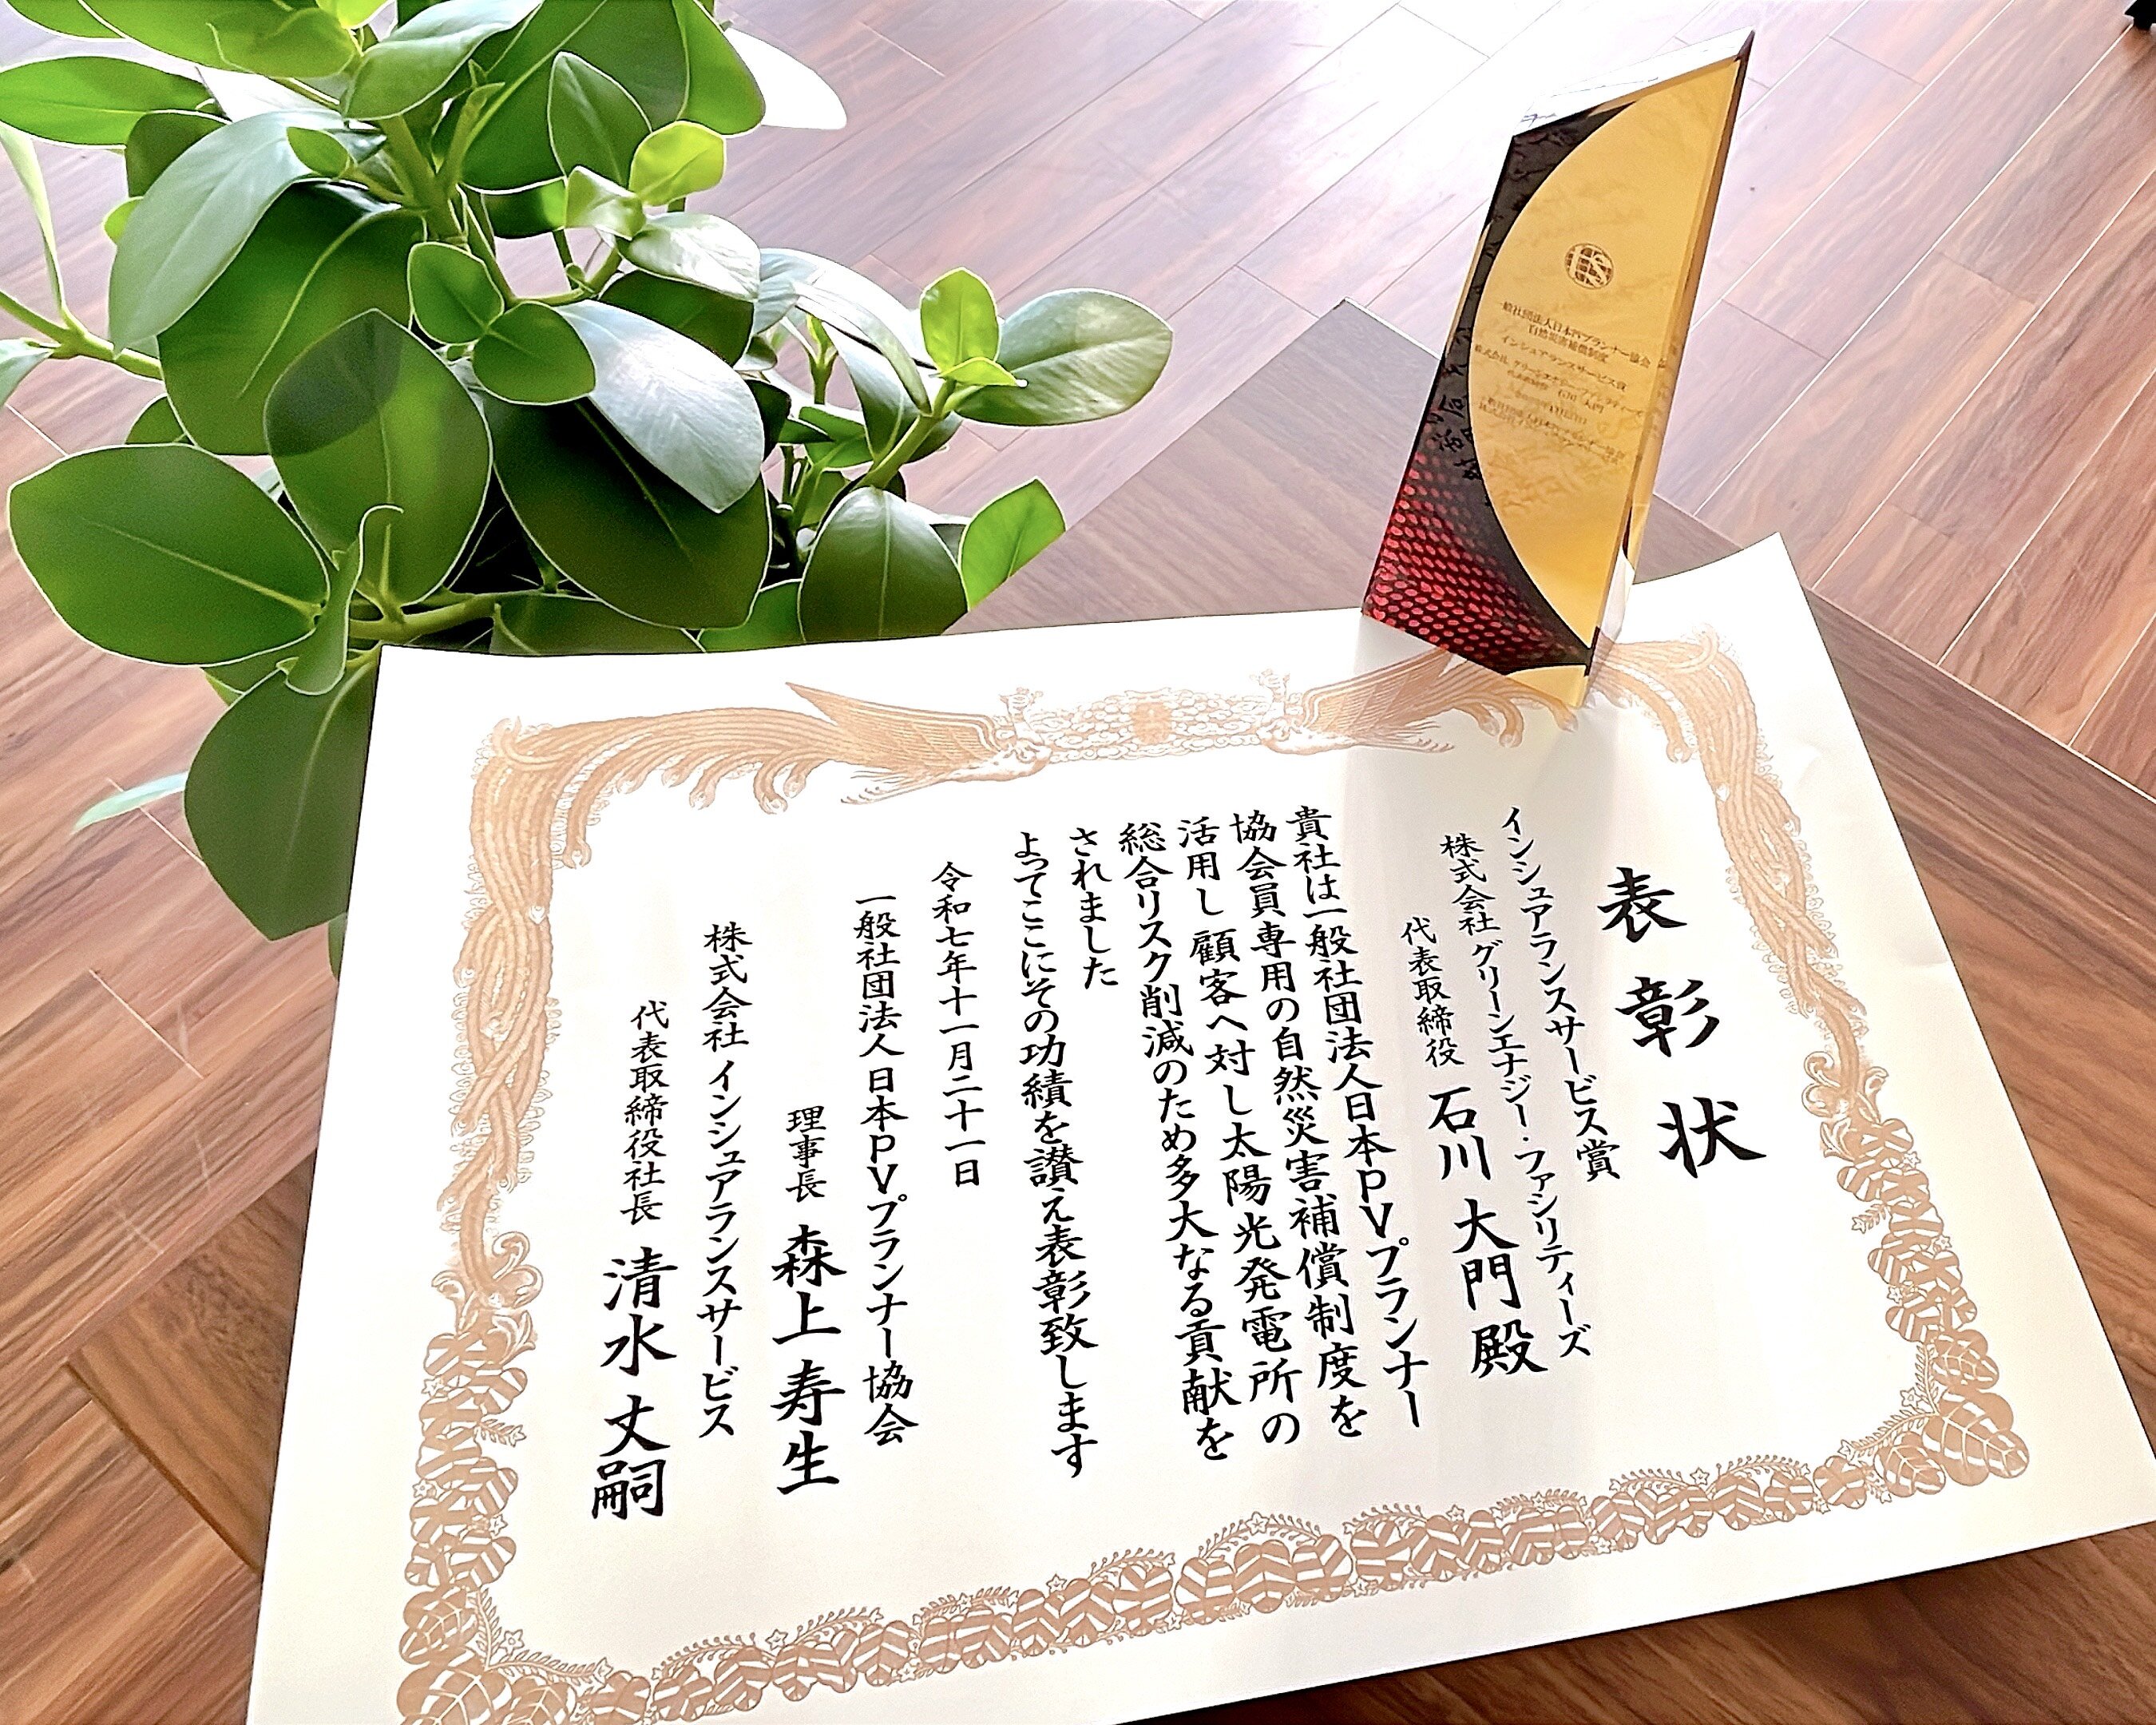 表彰状
インシュアランスサービス賞
株式会社 グリーンエナジー・ファシリティーズ
代表取締役 石川 大門 殿
貴社は一般社団法人日本PVプランナー
協会員専用の自然災害補償制度を
活用し顧客へ対し太陽光発電所の
総合リスク削減のため多大なる貢献を
されました
よってここにその功績を讃え表彰致します
令和七年十一月二十一日
一般社団法人 日本PVプランナー協会
理事長 森上 寿生
株式会社 インシュアランスサービス
代表取締役社長 清水 丈嗣
一般社団法人日本PVプランナー協会
自然災害補償制度
インシュアランスサービス賞
株式会社 グリーンエナジー・ファシリティーズ